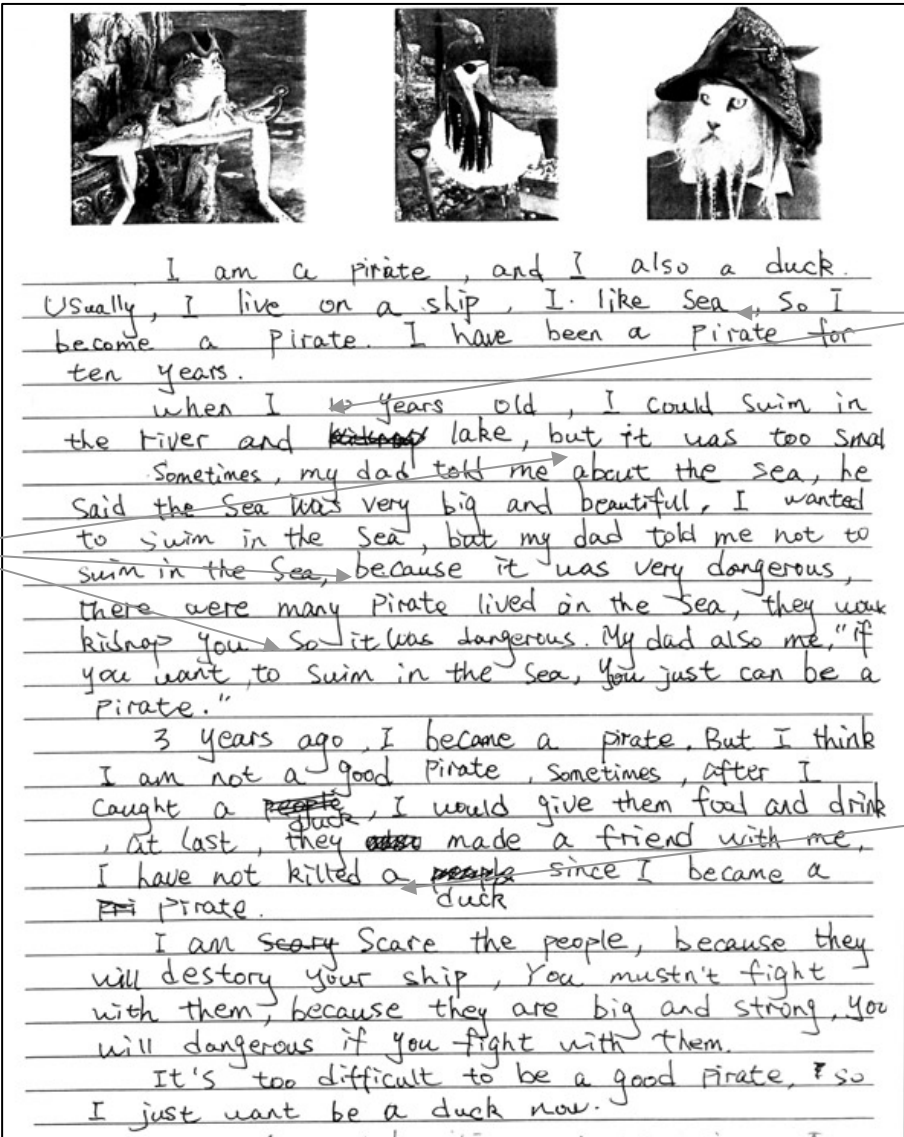 I am a pirate, and I also a duck.
Usually, I live on a ship, I. like Sea, So I
become a pirate. I have been a pirate for
ten years.
when I 10 years old, I could swim in
the river and lake, but it was too smal
Sometimes, my dad told me about the sea, he
Said the Sea was very big and beautiful, I wanted
to swim in the Sea, but my dad told me not to
swim in the Sea, because it was very dangerous,
there were many Pirate lived on the Sea, they
kidnap you So it was dangerous. My dad also me, "if
you want to swim in the Sea, you just can be a
Pirate."
3 years ago, I became a pirate. But I think
I am not a good Pirate, Sometimes, after I
Caught a duck, I would give them food and drink
, at last, they made a friend with me,
I have not killed a duck since I became a
pirate.
I am Scare the people, because they
will destory your ship, You mustn't fight
with them, because they are big and strong, you
will dangerous if you fight with them.
It's too difficult to be a good pirate, so
I just want be a duck now.